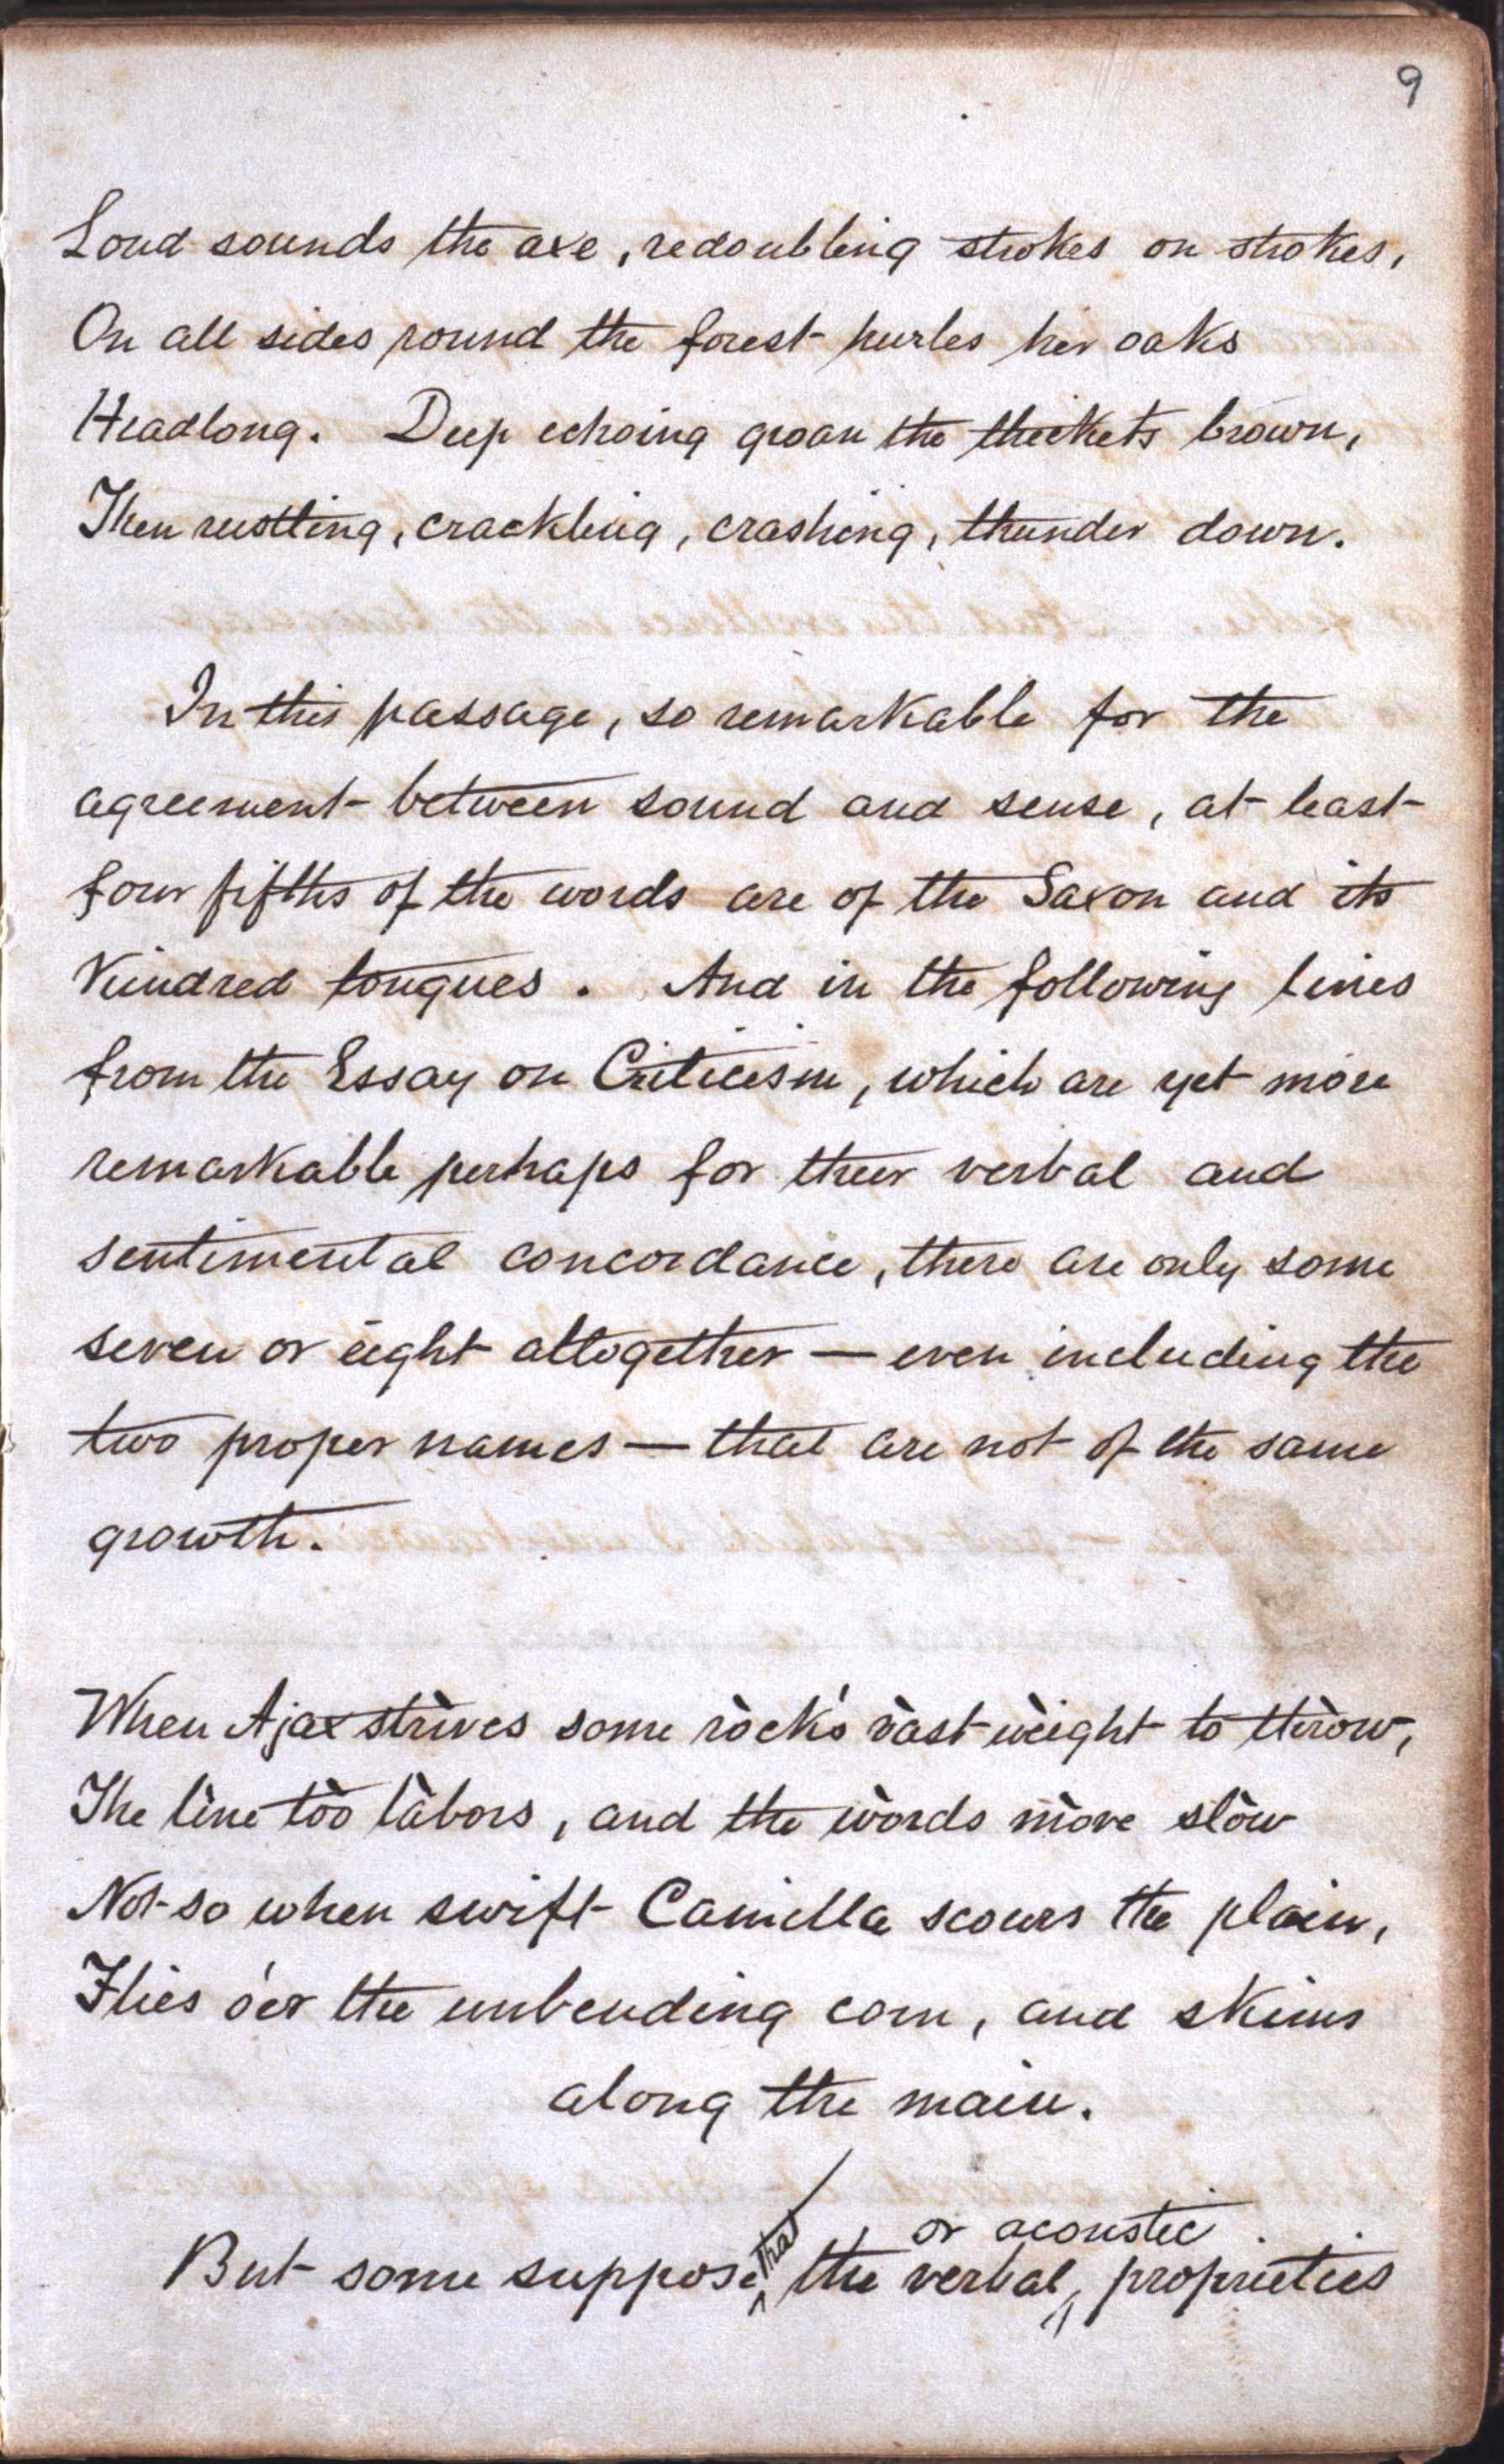 9
Loud sounds the axe, redoubling strokes on strokes,
On all sides round the forest hurles her oaks
Headlong. Deep echoing groan the thickets brown,
Then rustling, crackling, crashing, thunder down.
In this passage, so remarkable for the
agreement between sound and sense, at least
four fifths of the words are of the Saxon and its
Kindred tongues. And in the following lines
from the Essay on Criticism, which are yet more
remarkable perhaps for their verbal and
sentimental concordance, there are only some
seven or eight altogether — even including the
two proper names — that are not of the same
growth.
When Ajax strìves some ròck's vàst wèight to thròw,
The lìne tòo làbors, and the wòrds mòve slòw
Not so when swift Camilla scours the plain,
Flies o'er the unbending corn, and skims
along the main.
But some suppose ^that the verbal ^or acoustic proprieties